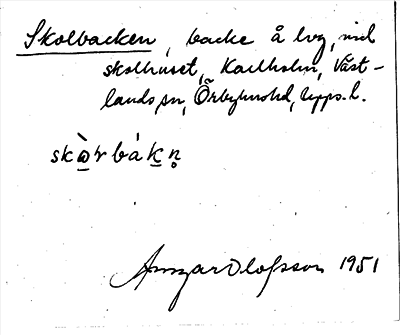 Skolbacken, backe å lvg, vid
skolhuset, Karlholm, Väst-
lands sn, Örbyhus hd, Upps. l.
skò̱rbákn̥
Ansgar Olofsson 1951